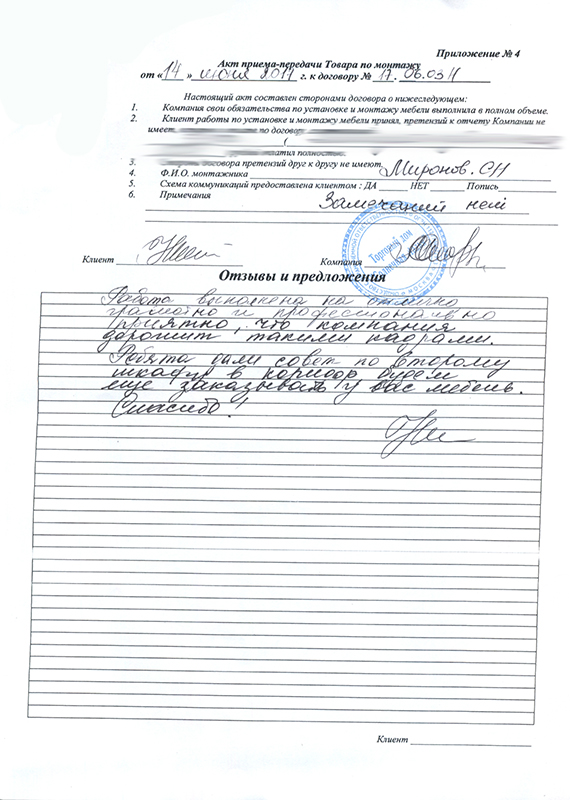 Приложение № 4
Акт приема-передачи Товара по монтажу
от «14» июня 2011 г. к договору № 17. 06.03 Н
Настоящий акт составлен сторонами договора о нижеследующем:
1. Компания свои обязательства по установке и монтажу мебели выполнила в полном объеме.
2. Клиент работы по установке и монтажу мебели принял, претензий к отчету Компании не
имеет по договору
(
полностью.
3. договора претензий друг к другу не имеют.
4. Ф.И.О. монтажника Миронов. СН
5. Схема коммуникаций предоставлена клиентом : ДА НЕТ Попись
6. Примечания Замечаний нет
Торговый дом
Клиент Компания
Отзывы и предложения
Работа выполнена на отлично
грамотно и профессионально
приятно, что компания
дорожит такими кадрами.
Ребята дали совет по второму
шкафу в коридор будем
еще заказывать у вас мебель.
Спасибо!
Клиент